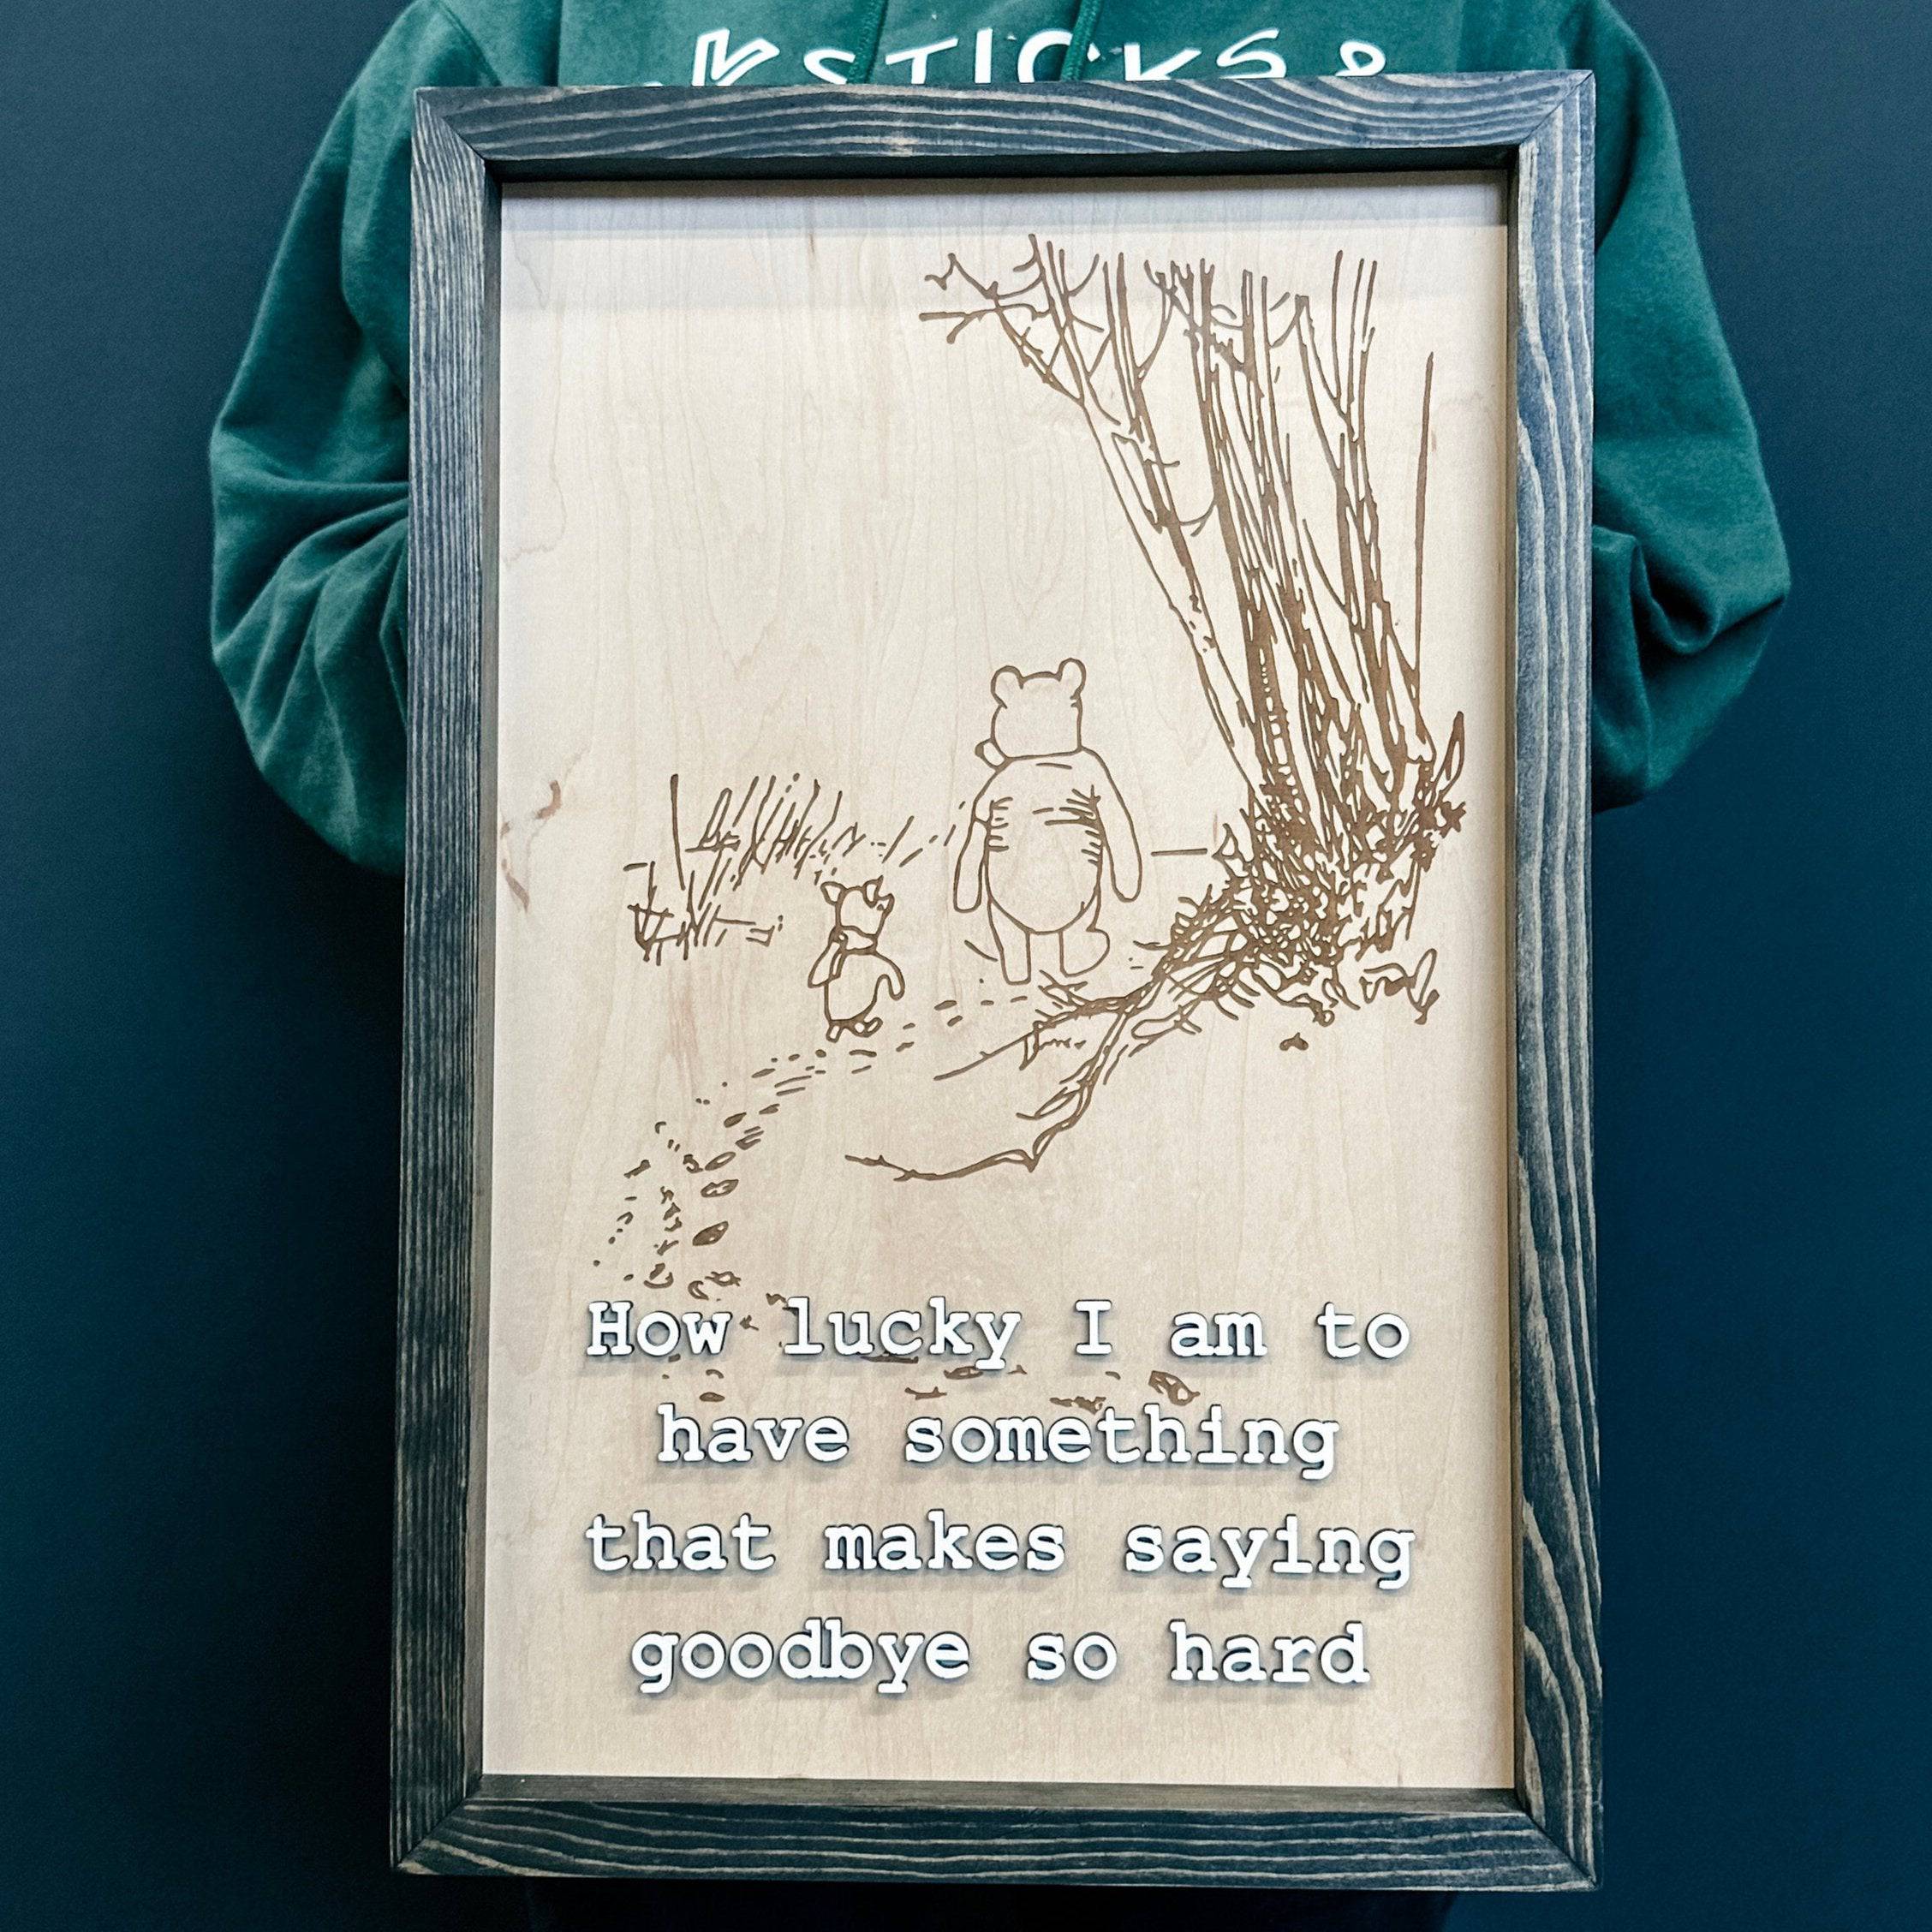 STICKS &
How lucky I am to
have something
that makes saying
goodbye so hard